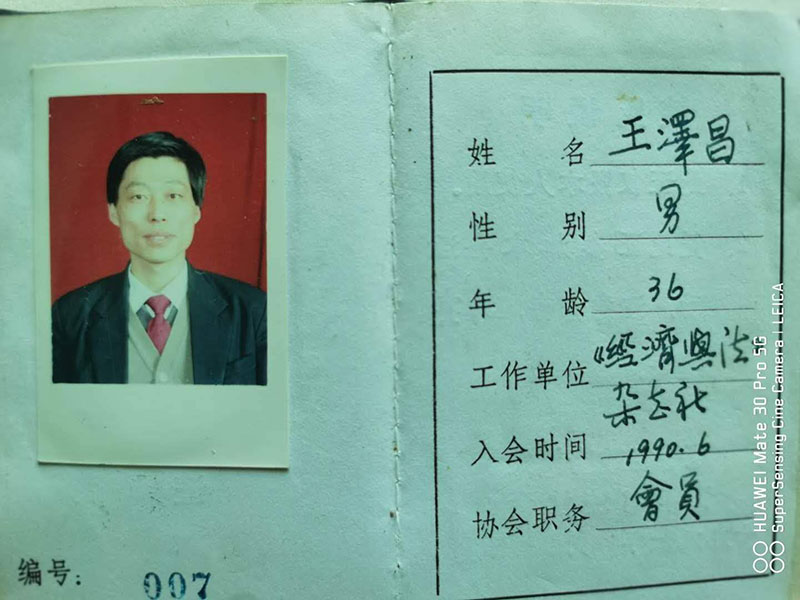 姓 名 王澤昌
性 别 男
年 龄 36
工作单位 《經濟與法
杂志社
入会时间 1990.6
协会职务 會員
编号: 007
HUAWEI Mate 30 Pro 5G
SuperSensing Cine Camera | LEICA